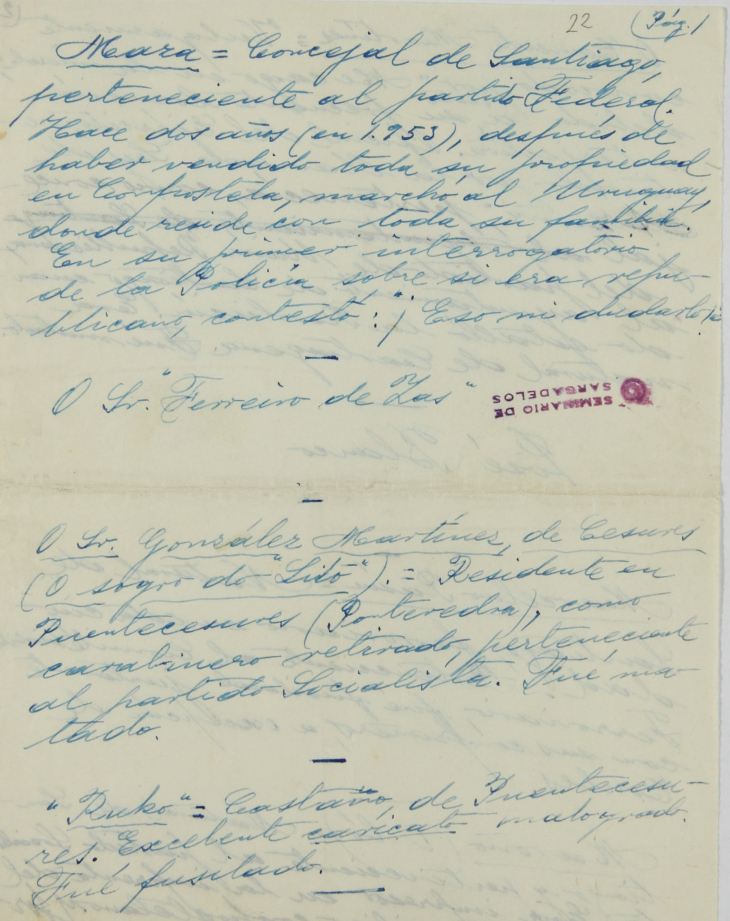 22 (Pág. 1
Maza = Concejal de Santiago,
perteneciente al partido Federal.
Hace dos años (en 1.953), después de
haber vendido toda su propiedad
en Compostela, marchó al Uruguay,
donde reside con toda su familia.
En su primer interrogatorio
de la Policía sobre si era repu-
blicano, contestó: "¡Eso ni dudarlo!"
—
O Sr. "Ferreiro de Zas"
SEMINARIO DE
SARGADELOS
—
O Sr. González Martínez, de Cesures
(O sogro do "Litó"). = Residente en
Puentecesures (Pontevedra), como
carabinero retirado, perteneciente
al partido Socialista. Fué ma-
tado.
—
"Ruko" = Castaño, de Puentecesu-
res. Excelente caricato malogrado.
Fué fusilado.
—